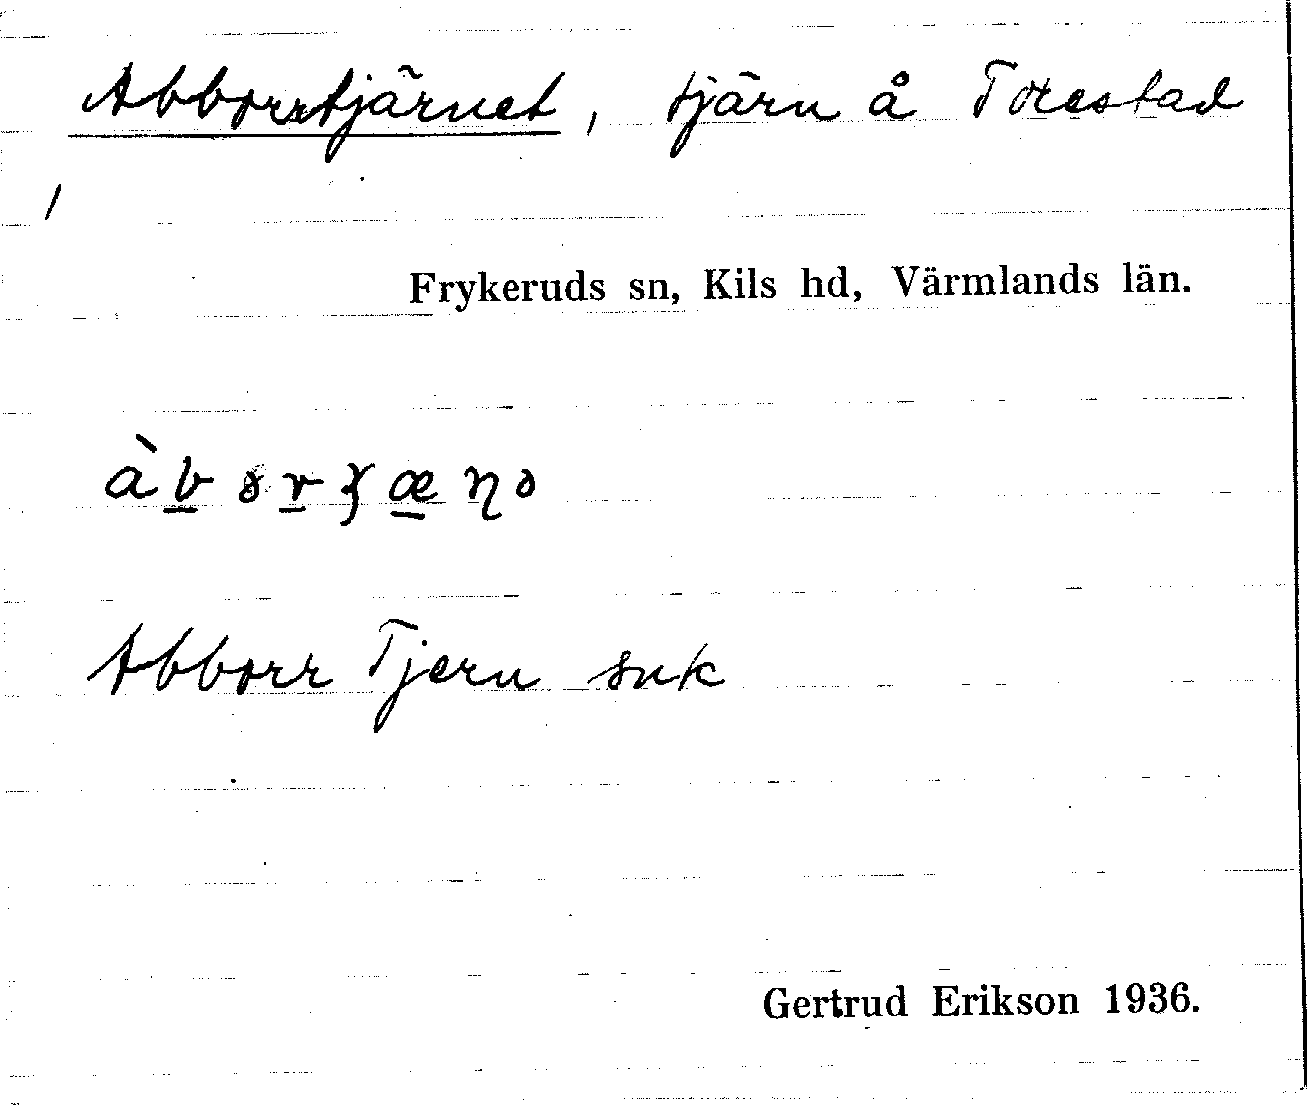 Abborrtjärnet, tjärn å Torestad
/
Frykeruds sn, Kils hd, Värmlands län.
Abborr Tjern snk
Gertrud Erikson 1936.